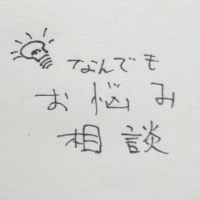 なんでも
お悩み
相談